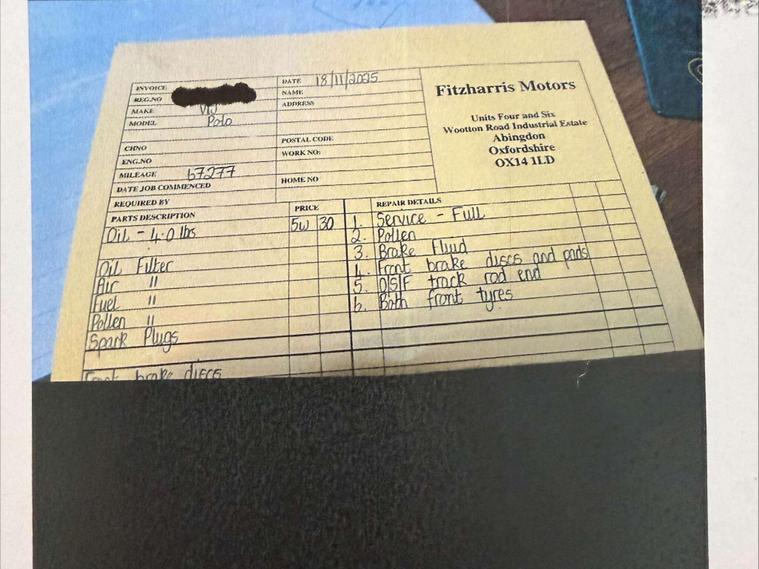 INVOICE
REG.NO
MAKE VW
MODEL Polo
CHNO
ENG.NO
MILEAGE 67277
DATE JOB COMMENCED
DATE 18/11/2025
NAME
ADDRESS
POSTAL CODE
WORK NO:
HOME NO
Fitzharris Motors
Units Four and Six
Wootton Road Industrial Estate
Abingdon
Oxfordshire
OX14 1LD
REQUIRED BY
PARTS DESCRIPTION PRICE
Oil - 4.0 lbs 5w 30
Oil Filter
Air "
Fuel "
Pollen "
Spark Plugs
Front brake discs
REPAIR DETAILS
1. Service - Full
2. Pollen
3. Brake Fluid
4. Front brake discs and pads
5. O/S/F track rod end
6. Both front tyres